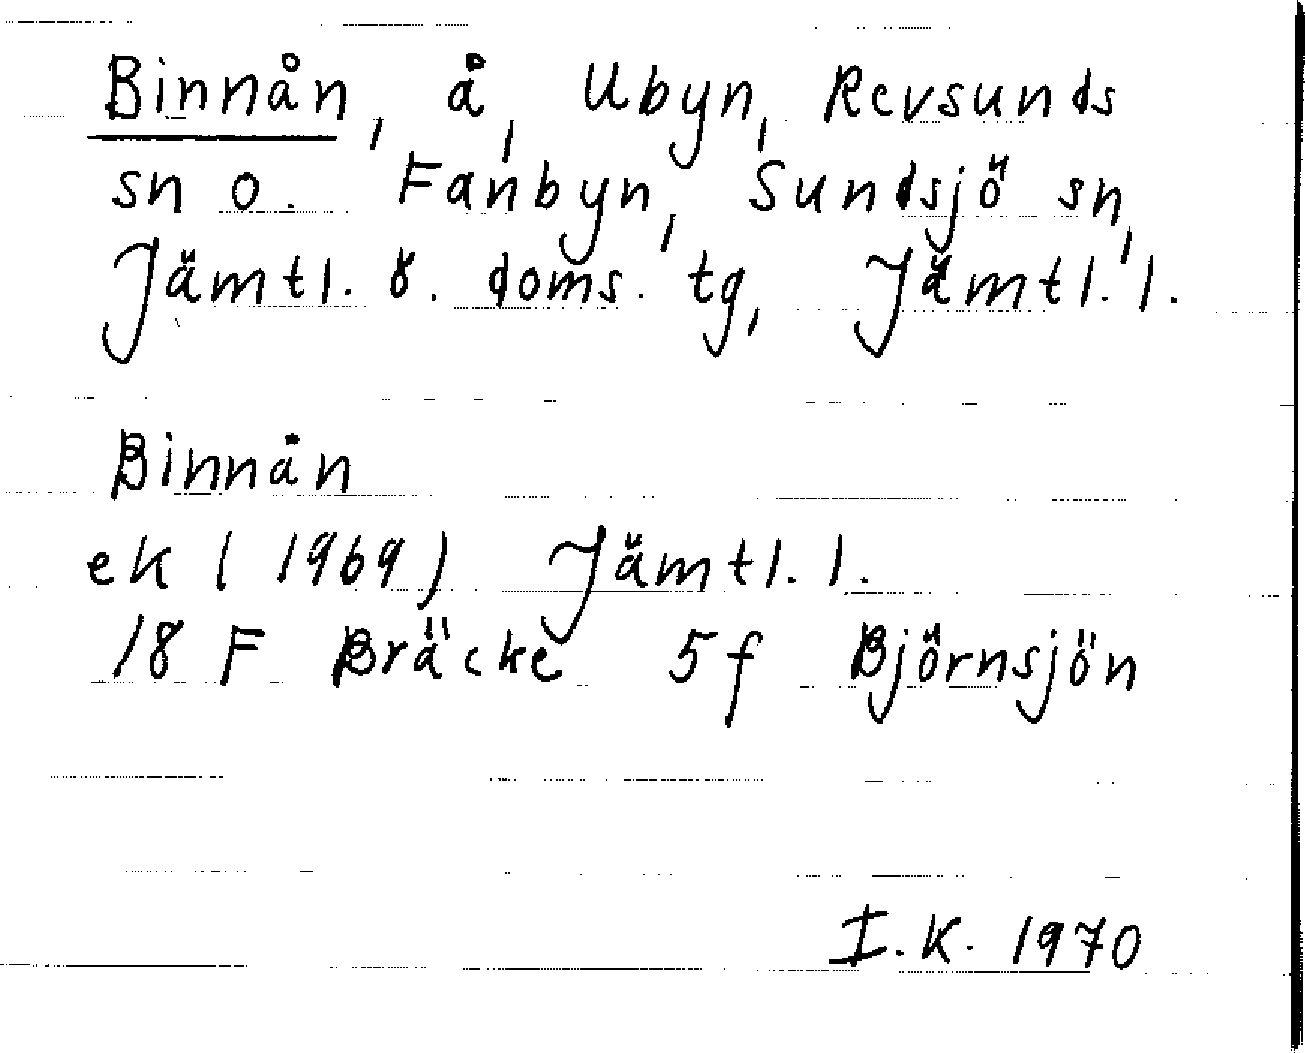 Binnån, å, Ubyn, Revsunds
sn o. Fanbyn, Sundsjö sn,
Jämtl. ö. doms. tg, Jämtl. l.
Binnån
ek (1969) Jämtl. l.
18 F Bräcke 5f Björnsjön
I.K. 1970